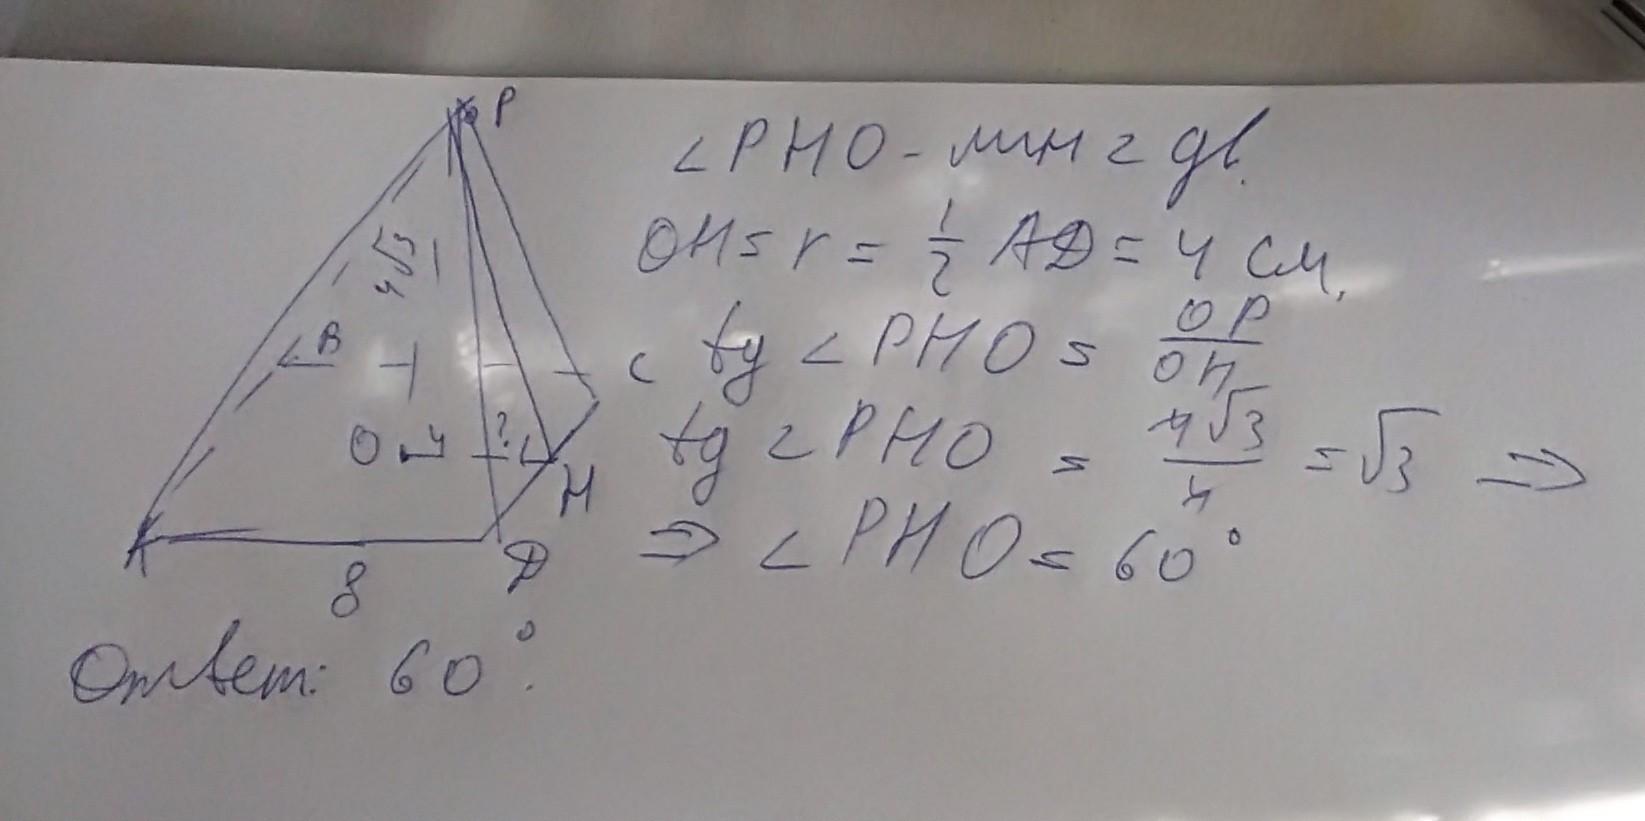 P
4√3
B
C
O 4 ?
H
A
D
8
∠PHO - лин ∠ дв.
OH = r = 1/2 AD = 4 см,
tg ∠PHO = OP/OH
tg ∠PHO = 4√3/4 = √3 ⇒
⇒ ∠PHO = 60°
Ответ: 60°.